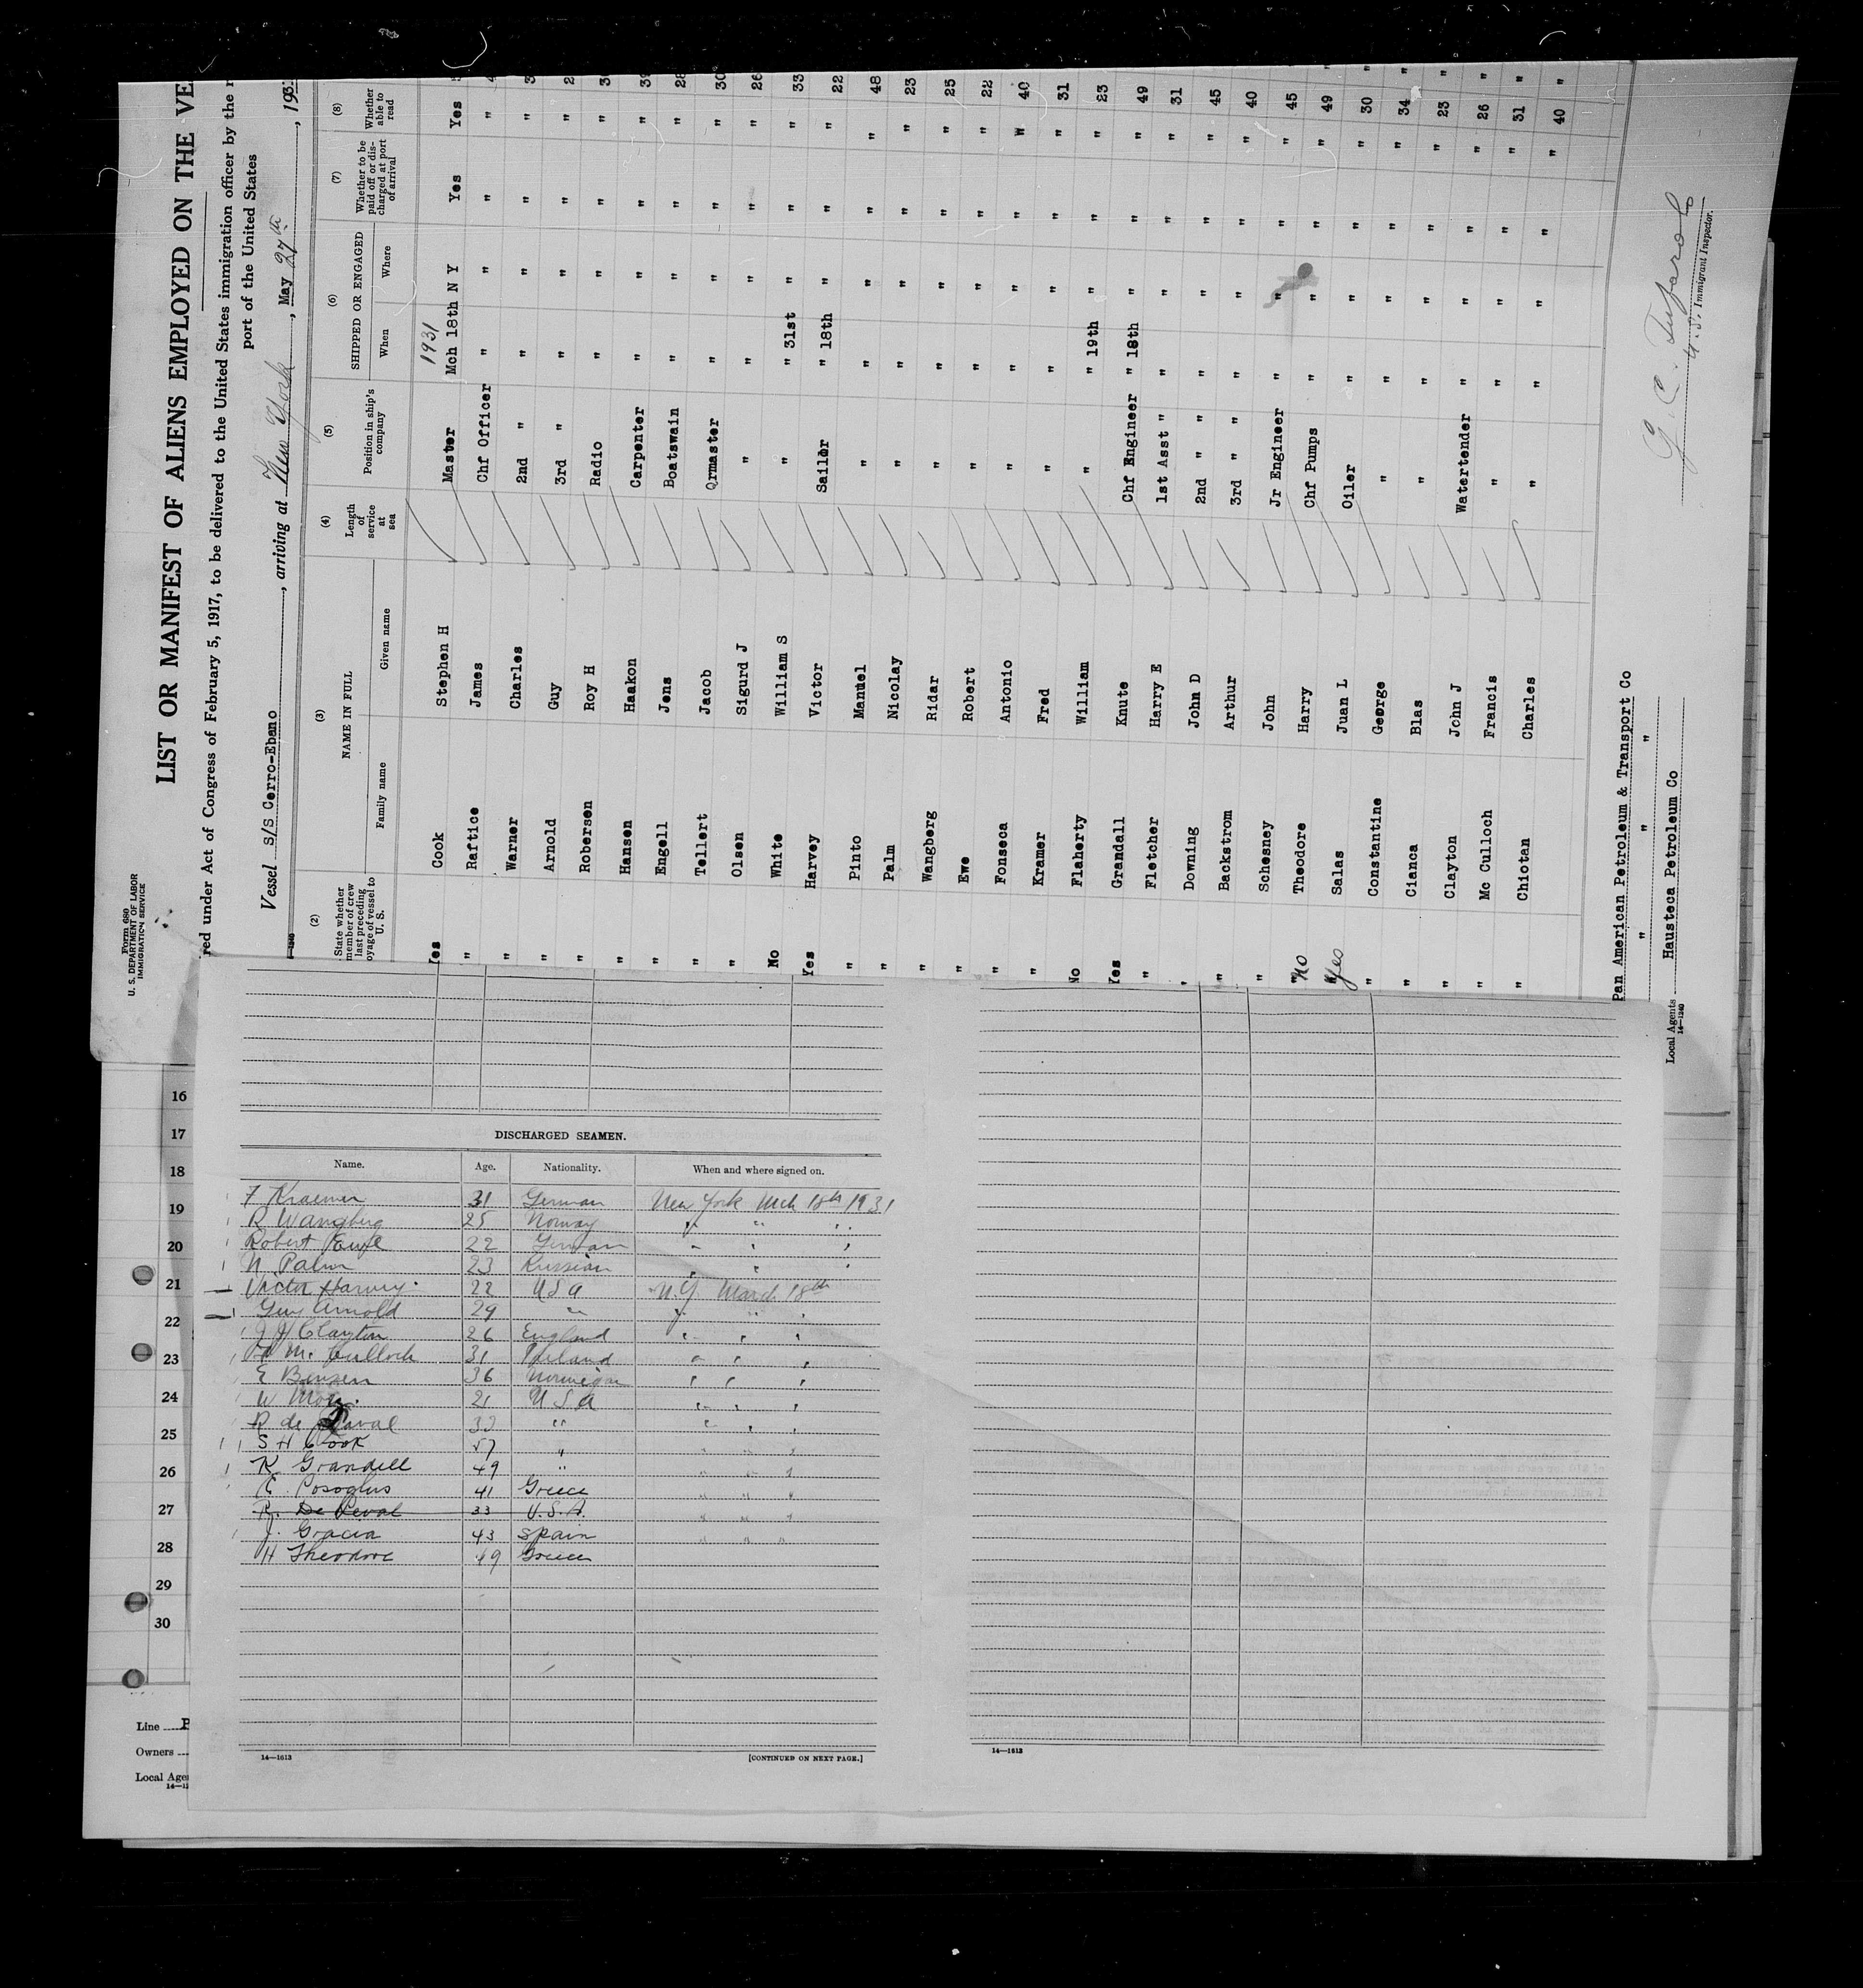 Form 680
U. S. DEPARTMENT OF LABOR
IMMIGRATION SERVICE
LIST OR MANIFEST OF ALIENS EMPLOYED ON THE VE
red under Act of Congress of February 5, 1917, to be delivered to the United States immigration officer by the r
port of the United States
Vessel S/S Cerro-Ebano, arriving at New York, May 27th, 193
(2) (3) (4) (5) (6) (7) (8)
State whether member of crew last preceding oyage of vessel to U. S.
NAME IN FULL
Family name Given name
Length of service at sea
Position in ship's company
SHIPPED OR ENGAGED
When Where
Whether to be paid off or discharged at port of arrival
Whether able to read
1931
Yes Cook Stephen H Master Mch 18th N Y Yes Yes
" Raftice James Chf Officer " " " "
" Warner Charles 2nd " " " " "
" Arnold Guy 3rd " " " " "
" Robersen Roy H Radio " " " "
" Hansen Haakon Carpenter " " " "
" Engell Jens Boatswain " " " " 28
" Tellert Jacob Qrmaster " " " " 30
" Olsen Sigurd J " " " " " 26
No White William S " " 31st " " " 33
Yes Harvey Victor Sailor " 18th " " " 22
" Pinto Manuel " " " " " 48
" Palm Nicolay " " " " " 23
" Wangberg Ridar " " " " " 25
" Ewe Robert " " " " " 22
" Fonseca Antonio " " " " " 40
" Kramer Fred " " " " " 31
No Flaherty William " " 19th " " " 23
Yes Grandall Knute Chf Engineer " 18th " " " 49
" Fletcher Harry E 1st Asst " " " " " 31
" Downing John D 2nd " " " " " " 45
" Backstrom Arthur 3rd " " " " " " 40
" Schesney John Jr Engineer " " " " 45
No Theodore Harry Chf Pumps " " " " 49
Yes Salas Juan L Oiler " " " " 30
" Constantine George " " " " " 34
" Cianca Blas " " " " " 23
" Clayton John J Watertender " " " " 26
" Mc Culloch Francis " " " " " 31
" Chiotan Charles " " " " " 40
Pan American Petroleum & Transport Co
" " "
Local Agents Hausteca Petroleum Co
14—1240
U. S. Immigrant Inspector.
16
17
18
19
20
21
22
23
24
25
26
27
28
29
30
Line P
Owners
Local Age
DISCHARGED SEAMEN.
Name. Age. Nationality. When and where signed on.
F Kraemer 31 German New York Mch 18th 1931
R Wangberg 25 Norway " " "
Robert 22 German " " "
N Palm 23 Russian " "
Victor Harvey 22 USA N.Y. March 18th
Guy Arnold 29 " " " "
J J Clayton 26 England " " "
F Mc Culloch 31 Ireland " " "
E Bensen 36 Norwegian " " "
W 21 USA " " "
R de Laval 33 " " " "
S H Cook 57 " " " "
K Grandell 49 " " " "
E. Posoglus 41 Greece " " "
R. De Leval 33 U.S.A. " " "
J. Gracia 43 Spain " " "
H Theodore 49 Greece
14—1613 [CONTINUED ON NEXT PAGE.]
14—1613